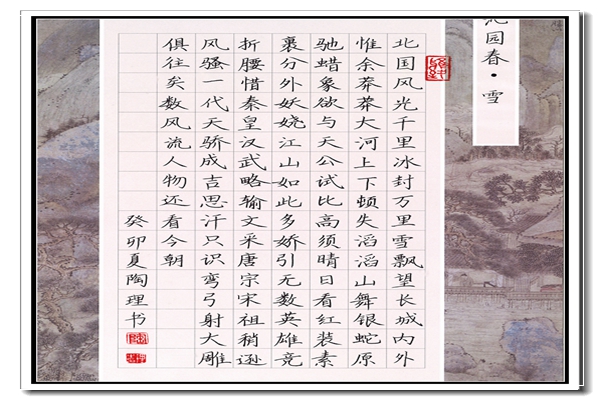 沁园春·雪
北国风光千里冰封万里雪飘望长城内外
惟余莽莽大河上下顿失滔滔山舞银蛇原
驰蜡象欲与天公试比高须晴日看红装素
裹分外妖娆江山如此多娇引无数英雄竞
折腰惜秦皇汉武略输文采唐宗宋祖稍逊
风骚一代天骄成吉思汗只识弯弓射大雕
俱往矣数风流人物还看今朝
癸卯夏陶理书